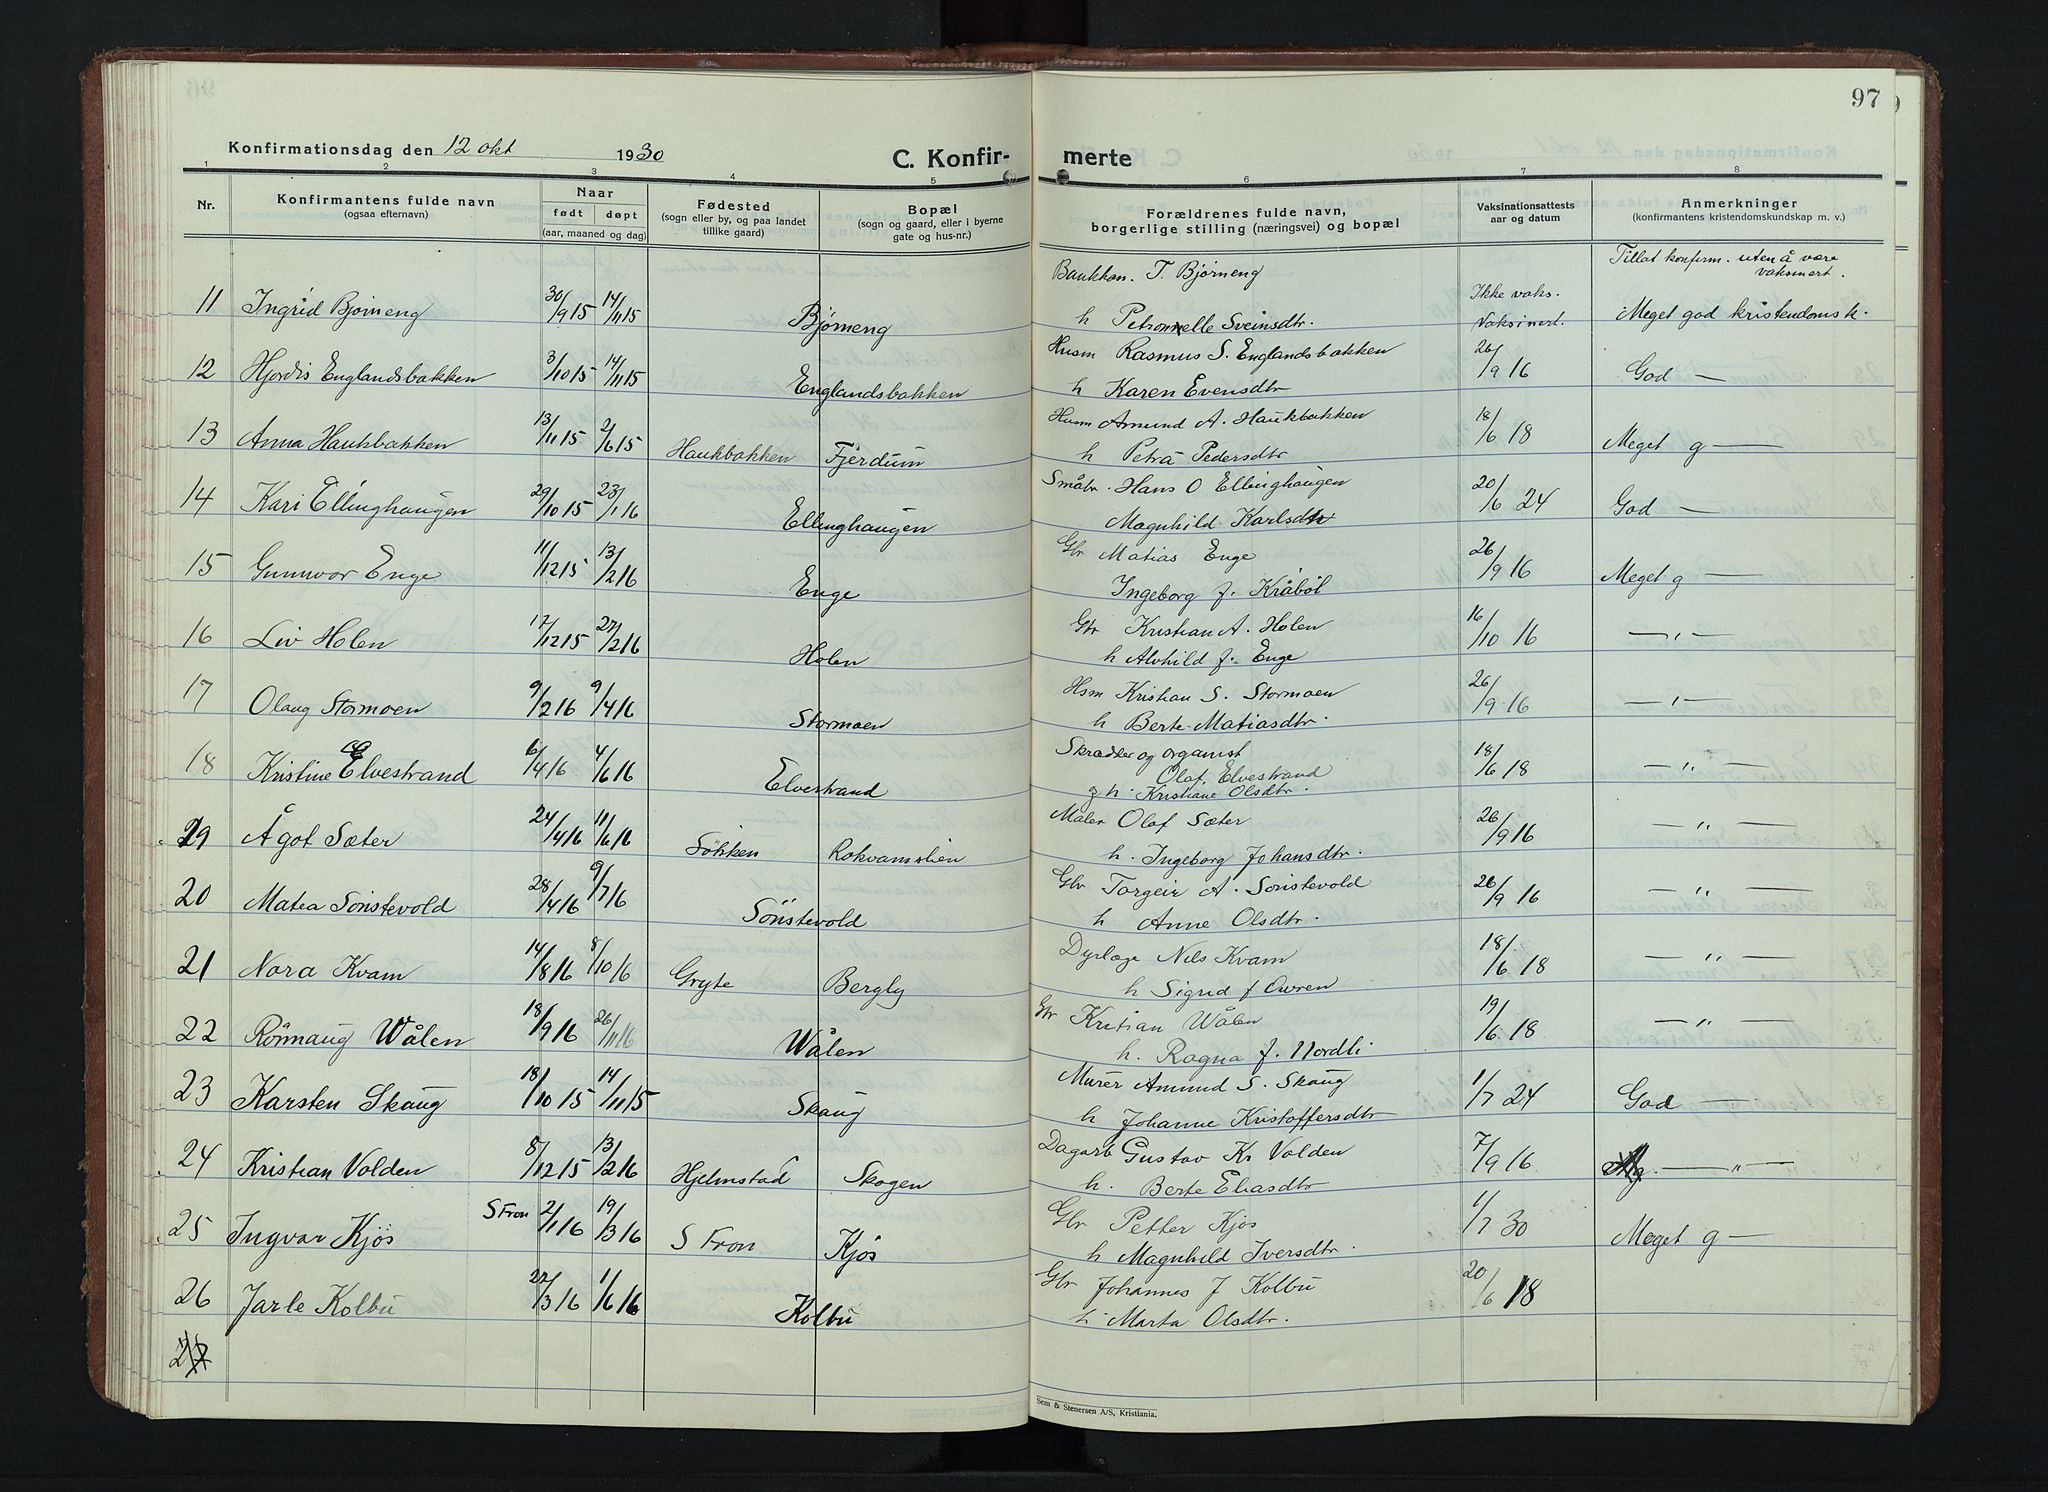 97
Konfirmationsdag den 12 okt 1930
C. Konfirmerte
1 2 3 4 5 6 7 8
Nr.
Konfirmantens fulde navn
(ogsaa efternavn)
Naar
født døpt
(aar, maaned og dag)
Fødested
(sogn eller by, og paa landet
tillike gaard)
Bopæl
(sogn og gaard, eller i byerne
gate og hus-nr.)
Forældrenes fulde navn,
borgerlige stilling (næringsvei) og bopæl
Vaksinationsattests
aar og datum
Anmerkninger
(konfirmantens kristendomskundskap m. v.)
Bankkas. T. Bjørneng Tillat konfirm. uten å være
vaksinert.
11 Ingrid Bjørneng 30/9 15 14/11 15 Bjørneng h Petronelle Sveinsdtr. Ikke vaks. Vaksinert. Meget god kristendomsk.
Husm Rasmus S. Englandsbakken
12 Hjørdis Englandsbakken 3/10 15 14/11 15 Englandsbakken h Karen Evensdtr 26/9 16 God —
Husm Amund A. Haukbakken
13 Anna Haukbakken 13/11 15 2/6 15 Haukbakken Fjerdum h Petra Pedersdtr 18/6 18 Meget g —
Småbr. Hans O Ellinghaugen
14 Kari Ellinghaugen 29/10 15 23/1 16 Ellinghaugen Magnhild Karlsdtr 20/6 24 God —
Gbr Matias Enge
15 Gunnvor Enge 11/12 15 13/2 16 Enge Ingeborg f. Kråbøl 26/9 16 Meget g —
Gbr Kristian A. Holen
16 Liv Holen 17/12 15 27/2 16 Holen h Alvhild f. Enge 16/10 16 — „ —
Hsm Kristian S. Stormoen
17 Olaug Stormoen 9/2 16 9/4 16 Stormoen h Berte Matiasdtr. 26/9 16 — „ —
Skrædder og organist
Olaf Elvestrand
18 Kristine Elvestrand 16/4 16 4/6 16 Elvestrand g h. Kristiane Olsdtr. 18/6 18 — „ —
Maler Olaf Sæter
19 Ågot Sæter 24/4 16 11/6 16 Søkken Rokvamslien h. Ingeborg Johansdtr. 26/9 16 — „ —
Gbr Torgeir A. Sønstevold
20 Matea Sønstevold 28/4 16 9/7 16 Sønstevold h Anne Olsdtr. 26/9 16 — „ —
Dyrlæge Nils Kvam
21 Nora Kvam 14/8 16 8/10 16 Gryte Bergly h Sigrid f Owren 18/6 18 — „ —
Gbr Kritian Wålen
22 Rønnaug Wålen 18/9 16 26/11 16 Wålen h. Ragna f. Nordli 19/6 18 — „ —
Murer Amund S. Skaug
23 Karsten Skaug 18/10 15 14/11 15 Skaug h Johanne Kristoffersdtr 1/7 24 God —
Dagarb Gustav Kr Volden
24 Kristian Volden 8/12 15 13/2 16 Hjelmstad Skogen h. Berte Eliasdtr 7/9 16 — „ —
Gbr Petter Kjøs
25 Ingvar Kjøs S Fron 2/1 16 19/3 16 S Fron Kjøs h Magnhild Iversdtr. 1/7 30 Meget g —
Gbr Johannes J Kolbu
26 Jarle Kolbu 27/3 16 1/6 16 Kolbu h Marta Olsdtr. 20/6 18
27
Sem & Stenersen A/S, Kristiania.